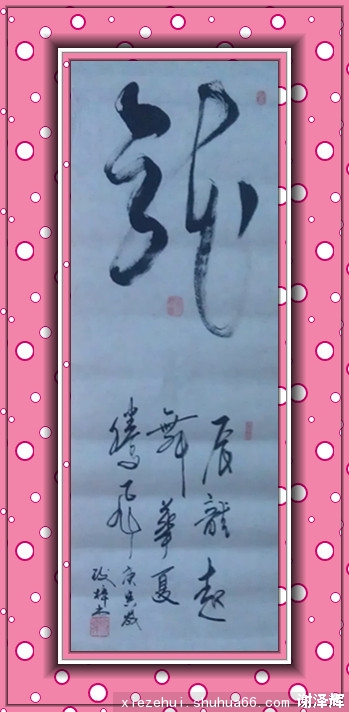 龍
辰龍起
舞華夏
騰飛
xiezehui.shuhua66.com 谢泽辉